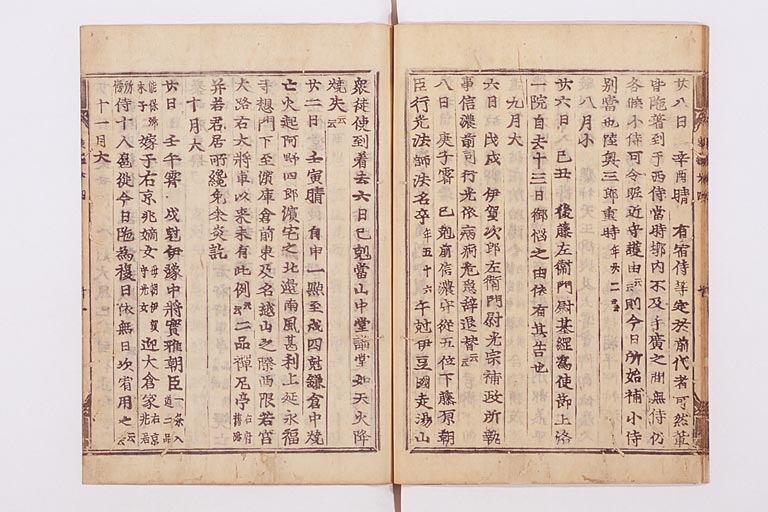 廿八日 辛酉晴 有宿侍等定於前代者可然輩
皆臨著到于西侍當時郭内不及手廣之間無侍仍
各候小侍可令昵近守護由云云則今日所始補小侍
別當也陸奥三郎重時年廿二
八月小
廿六日 己丑 後藤左衞門尉基經爲使節上洛
一院自去十三日御惱之由依有其告也
九月大
六日 戊戌 伊賀次郎左衞門尉光宗補政所執
事信濃前司行光依病痾危急辭退替云云
八日 庚子霽 巳尅前信濃守從五位下藤原朝
臣行光法師法名卒年五十六午尅伊豆國走湯山
衆徒使到着去六日巳尅當山中堂講堂如天火降
燒失云云
廿二日 壬寅晴 自申一點至戌四尅鎌倉中燒
亡火起阿野四郎濱宅之北邊南風甚利上延永福
寺惣門下至濱庫倉前東及名越山之際西限若宮
大路右大將軍以來未有此例云云二品禪尼亭右府舊跡
并若君居所纔免余炎訖
十月大
廿日 壬午霽 戌尅伊豫中將實雅朝臣一條入道二品
能保卿末子嫁于右京兆嫡女母朝伊賀守光女迎大倉家右京兆居
所侍十人扈從今日臨爲複日依無日次宥用之云云
十一月大